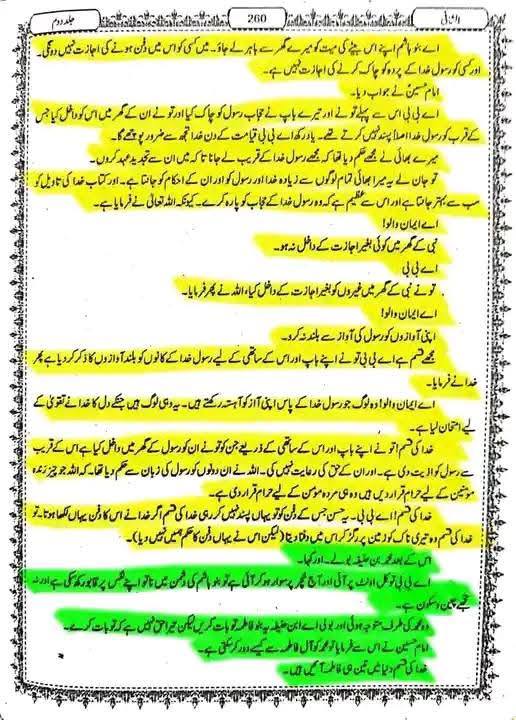 الثانی 260 جلد دوم
اے بنو ہاشم اپنے اس بیٹے کی میت کو میرے گھر سے باہر لے جاؤ۔ میں کسی کو اس میں دفن ہونے کی اجازت نہیں دونگی۔
اور کسی کو رسول خدا کے پردہ کو چاک کرنے کی اجازت نہیں ہے۔
امام حسینؑ نے جواب دیا۔
اے بی بی اس سے پہلے تو نے اور تیرے باپ نے حجاب رسول کو چاک کیا اور تو نے ان کے گھر میں اس کو داخل کیا جس
کے قرب کو رسول خدا اصلا پسند نہیں کرتے تھے۔ یاد رکھ اے بی بی قیامت کے دن خدا تجھ سے ضرور پوچھے گا۔
میرے بھائی نے مجھے حکم دیا تھا کہ مجھے رسول خدا کے قریب لے جانا تا کہ میں ان سے تجدید عہد کروں۔
تو جان لے یہ میرا بھائی تمام لوگوں سے زیادہ خدا اور رسول کو اور ان کے احکام کو جانتا ہے۔ اور کتاب خدا کی تاویل کو
سب سے بہتر جانتا ہے اور اس سے عظیم ہے کہ وہ رسول خدا کے حجاب کو پارہ کرے۔ کیونکہ اللہ تعالیٰ نے فرمایا ہے۔
اے ایمان والو!
نبی کے گھر میں کوئی بغیر اجازت کے داخل نہ ہو۔
اے بی بی
تو نے نبی کے گھر میں غیروں کو بغیر اجازت کے داخل کیا، اللہ نے پھر فرمایا۔
اے ایمان والو!
اپنی آوازوں کو رسول کی آواز سے بلند نہ کرو۔
مجھے قسم ہے اے بی بی تو نے اپنے باپ اور اس کے ساتھی کے لیے رسول خدا کے کانوں کو بلند آوازوں کا ذکر کر دیا ہے پھر
خدا نے فرمایا۔
اے ایمان والو! وہ لوگ جو رسول خدا کے پاس اپنی آواز کو آہستہ رکھتے ہیں۔ یہ وہی لوگ ہیں جنکے دل کا خدا نے تقویٰ کے
لیے امتحان لیا ہے۔
خدا کی قسم! تو نے اپنے باپ اور اس کے ساتھی کے ذریعے جن کو تو نے ان کو رسول کے گھر میں داخل کیا ہے اس کے قریب
سے رسول کو اذیت دی ہے۔ اور ان کے حق کی رعایت نہیں کی۔ اللہ نے ان دونوں کو رسول کی زبان سے حکم دیا تھا۔ کہ اللہ جو چیز زندہ
مؤمنین کے لیے حرام قرار دیں ہیں وہ ہی مردہ مؤمن کے لیے حرام قرار دی ہے۔
خدا کی قسم! اے بی بی۔ یہ حسن جس کے دفن کو تو یہاں پسند نہیں کر رہی خدا کی قسم اگر خدا نے اس کا دفن یہاں لکھا ہوتا۔ تو
خدا کی قسم وہ تیری ناک کو زمین پر رگڑ کر اس میں دفنا دیتا (لیکن اس نے یہاں دفن کا حکم ہمیں نہیں دیا)۔
اس کے بعد محمد بن حنفیہ بولے۔ اور کہا۔
اے بی بی تو کل اونٹ پر آئی اور آج خچر پر سوار ہو کر آئی ہے تو بنو ہاشم کی دشمن میں نا تو اپنے نفس پر قابو رکھ سکی ہے اور نہ
تجھے چین و سکون ہے۔
وہ محمد کی طرف متوجہ ہوئی اور بولی اے ابن حنفیہ یہ بنو فاطمہ تو بات کریں لیکن تیرا حق نہیں ہے کہ تو بات کرے۔
امام حسین نے اس سے فرمایا تو محمد کو آل فاطمہ سے کیسے دور کر سکتی ہے۔
خدا کی قسم دنیا میں تین ہی فاطمہ آئیں ہیں۔